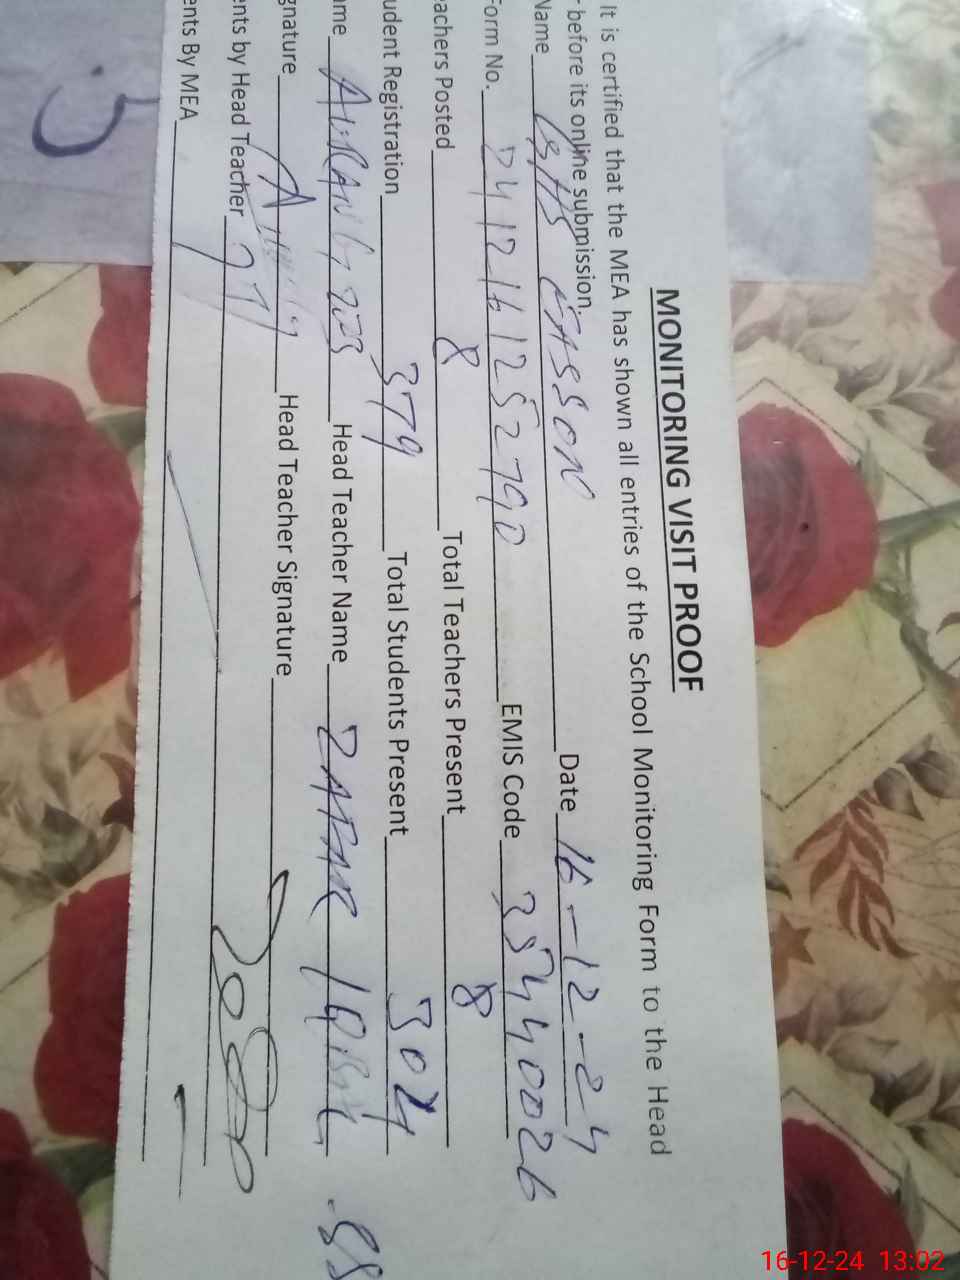 MONITORING VISIT PROOF
It is certified that the MEA has shown all entries of the School Monitoring Form to the Head
r before its online submission.
Name GHS Date 16-12-24
Form No. 2412161252790 EMIS Code 35440026
eachers Posted 8 Total Teachers Present 8
udent Registration 379 Total Students Present 304
ame Head Teacher Name ZAFAR IQBAL
gnature Head Teacher Signature
ents by Head Teacher
ents By MEA
16-12-24 13:02